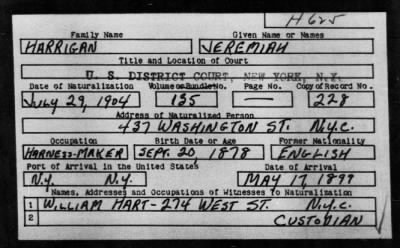 H625
Family Name Given Name or Names
HARRIGAN JEREMIAH
Title and Location of Court
U. S. DISTRICT COURT, NEW YORK, N.Y.
Date of Naturalization Volume or Bundle No. Page No. Copy of Record No.
JULY 29, 1904 135 — 228
Address of Naturalized Person
437 WASHINGTON ST. N.Y.C.
Occupation Birth Date or Age Former Nationality
HARNESS-MAKER SEPT. 20, 1878 ENGLISH
Port of Arrival in the United States Date of Arrival
N.Y. N.Y. MAY 17, 1899
Names, Addresses and Occupations of Witnesses To Naturalization
1 WILLIAM HART-274 WEST ST. N.Y.C.
2 CUSTODIAN